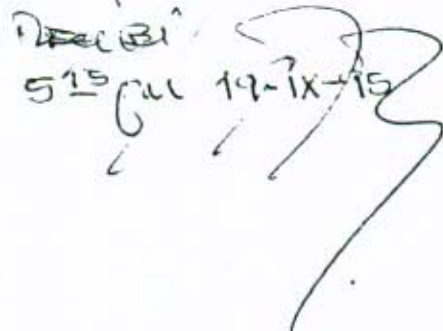 Recibí
5 15 pm 19-IX-15